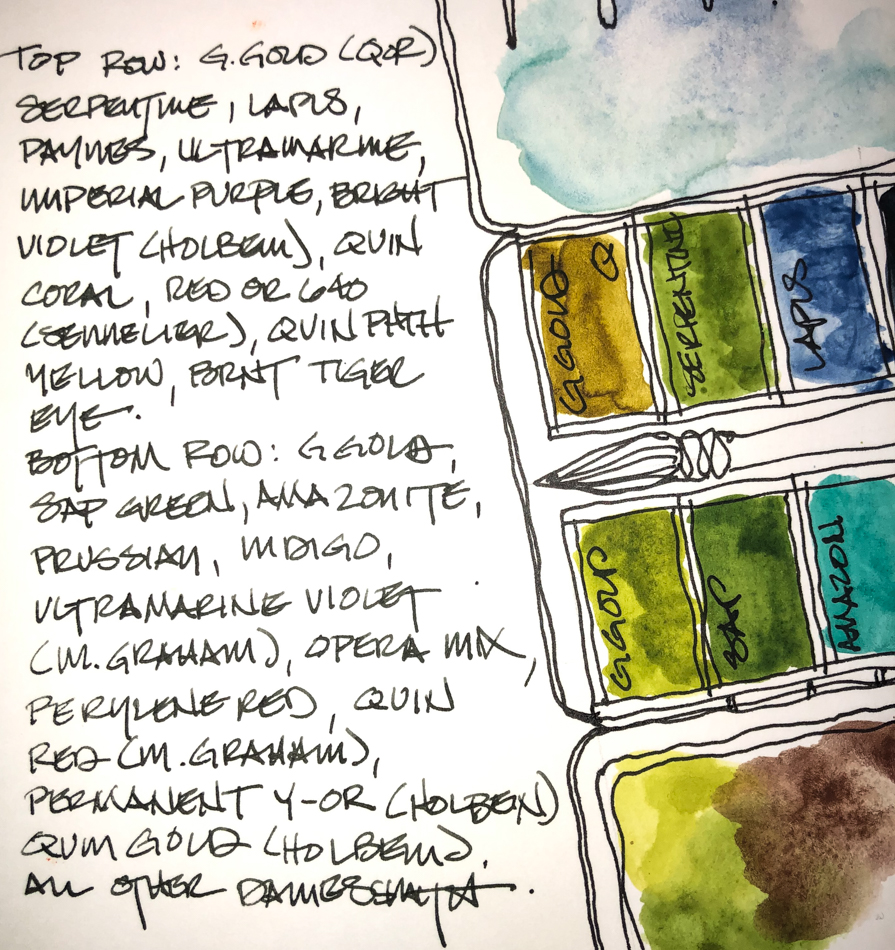 TOP ROW: G.GOLD (QOR)
SERPENTINE, LAPIS,
PAYNES, ULTRAMARINE,
IMPERIAL PURPLE, BRIGHT
VIOLET (HOLBEIN), QUIN
CORAL, RED OR 640
(SENNELIER), QUIN PHTH
YELLOW, BRNT TIGER
EYE.
BOTTOM ROW: G GOLD,
SAP GREEN, AMAZONITE,
PRUSSIAN, INDIGO,
ULTRAMARINE VIOLET
(M.GRAHAM), OPERA MIX,
PERYLENE RED, QUIN
RED (M.GRAHAM),
PERMANENT Y-OR (HOLBEIN)
QUIN GOLD (HOLBEIN).
ALL OTHER
G GOLD Q
SERPENTINE
LAPIS
G GOLD
SAP
AMAZON